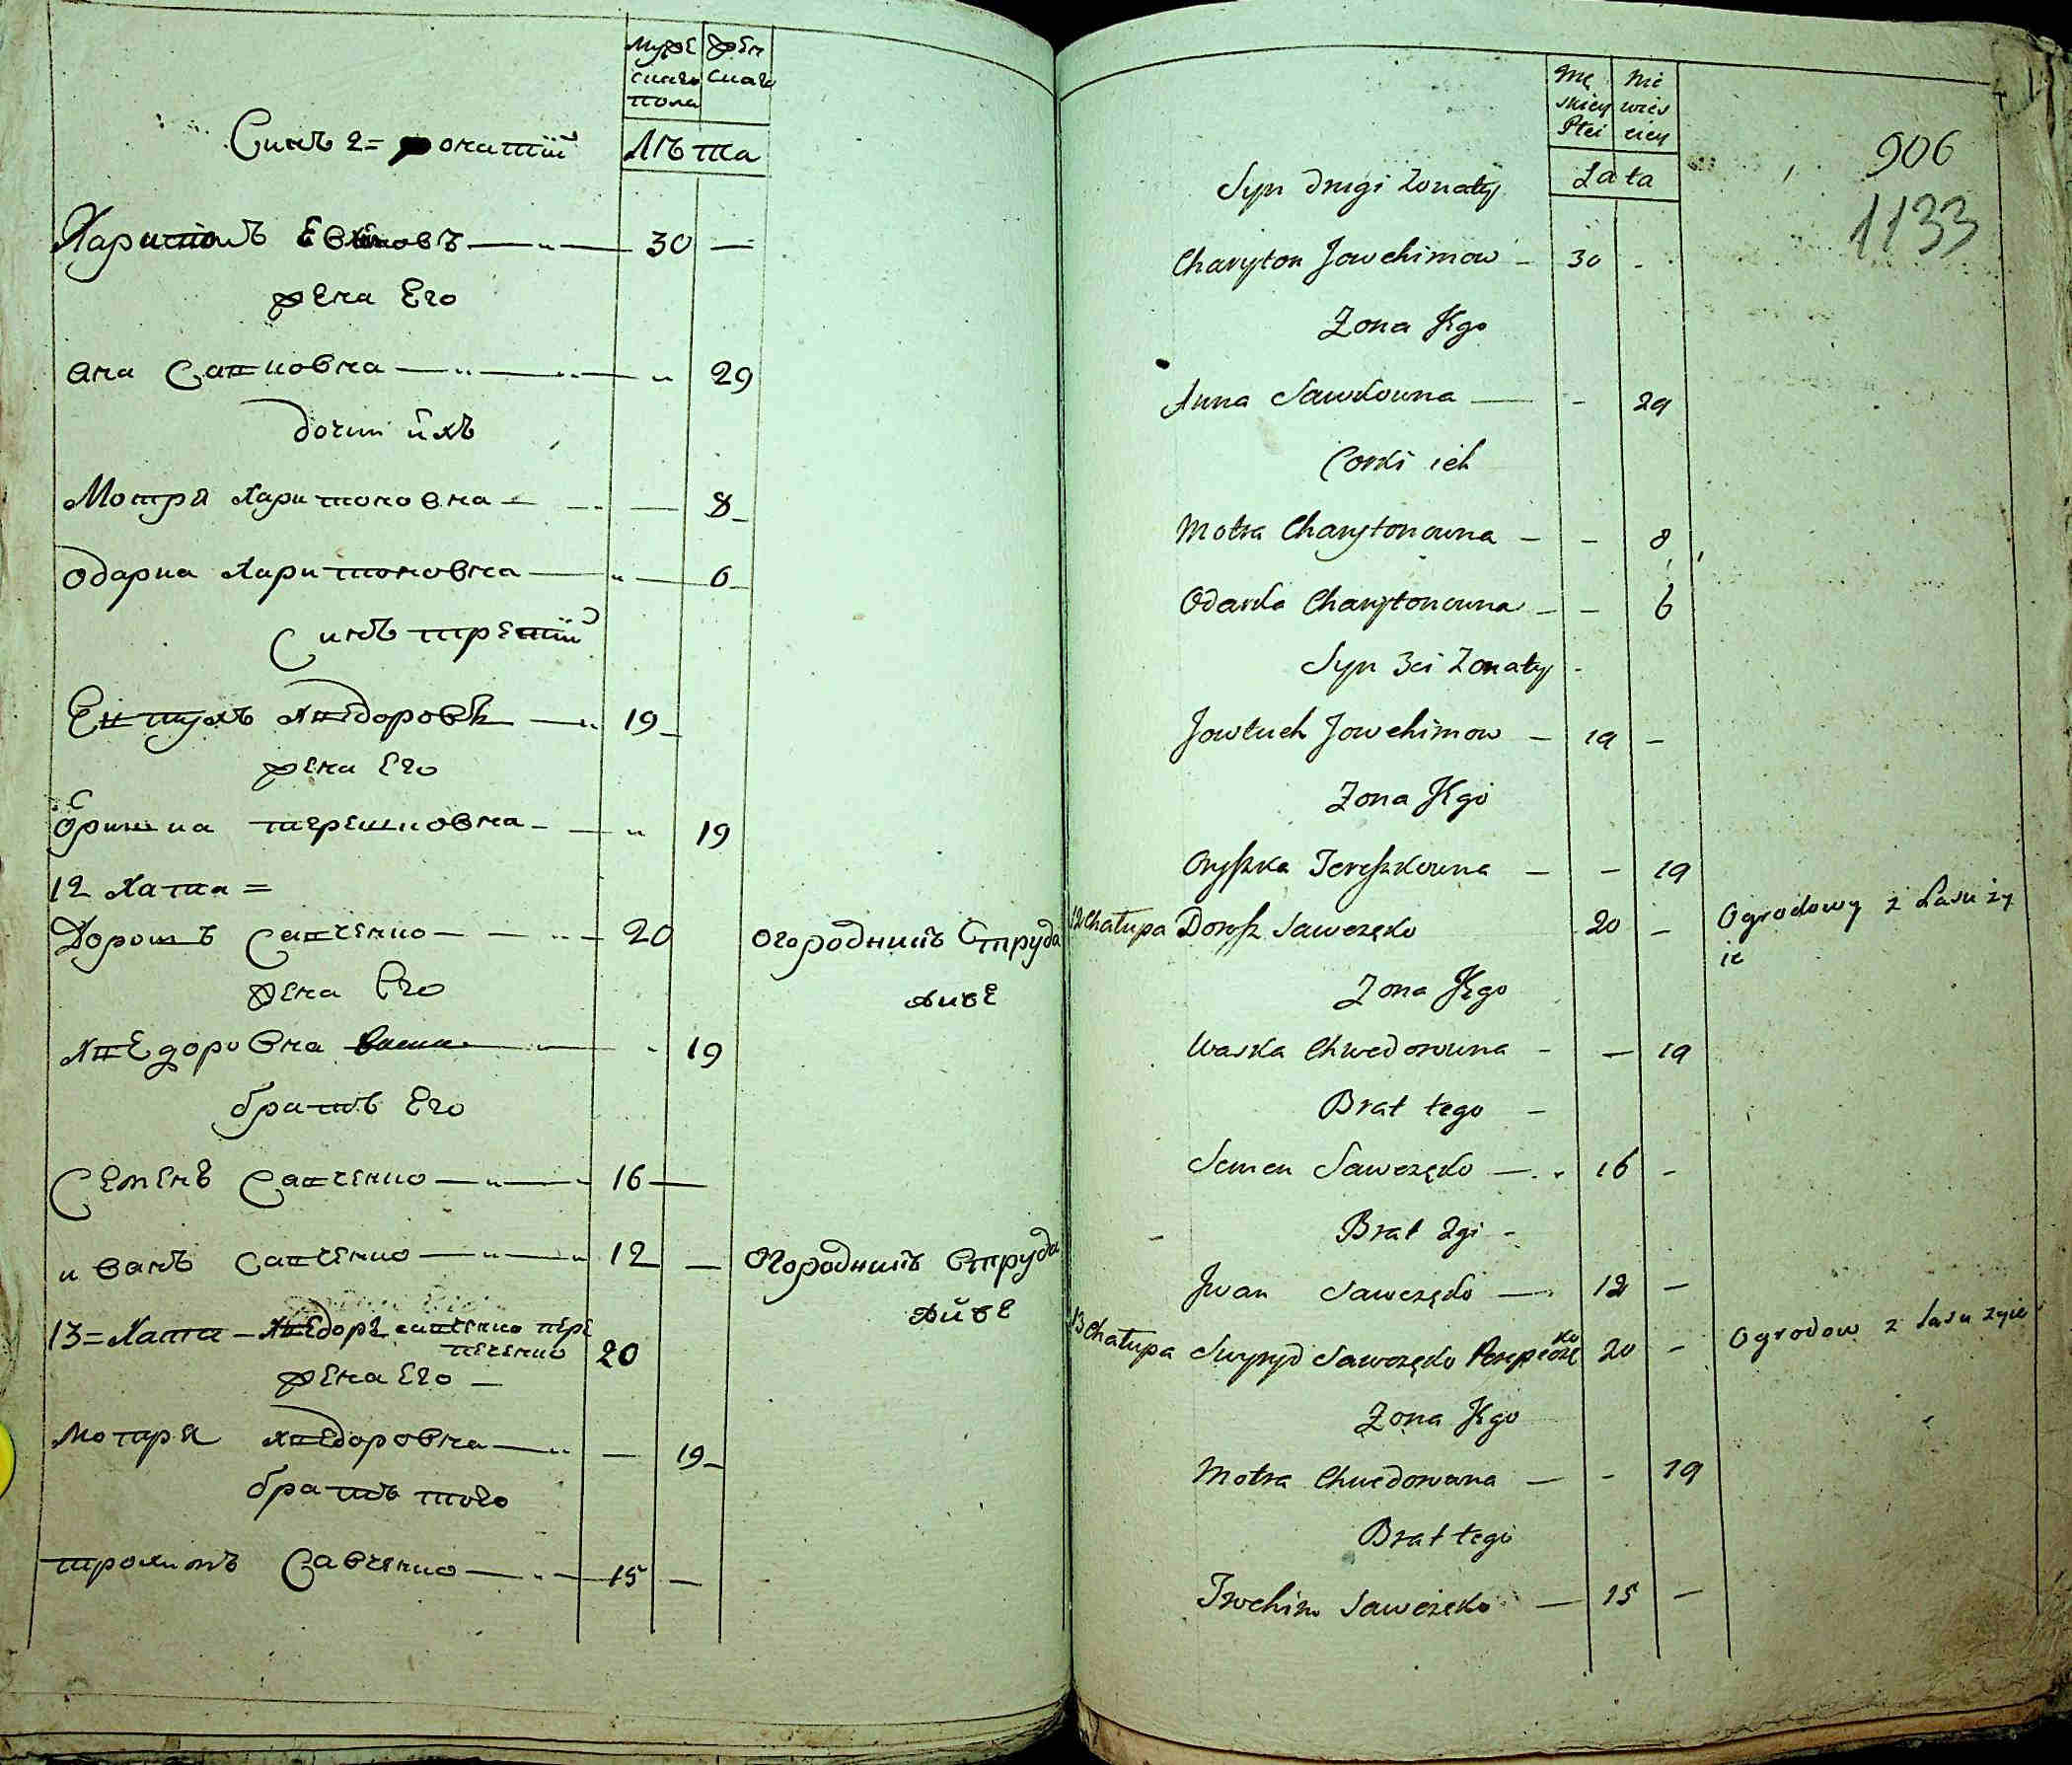 Мужескаго пола
Женскаго
Лѣта
Синъ 2= жонатій
Харитонъ Евхимовъ 30 —
жена Его
Ана Савковна 29
дочки ихъ
Мотря Харитоновна 8
Одарка Харитоновна 6
Синъ третій
Евтухъ Хведоровъ 19
жена Его
Оришка терешковна 19
12 Хата =
Дорошъ Савченко 20 огородникъ Струда
живе
жена Его
Хведоровна 19
братъ Его
Семенъ Савченко 16 —
иванъ Савченко 12 — огородникъ Струда
живе
13 = Хата – савченко пере
печенко 20
жена Его —
мотря хведоровна — 19
братъ того
трохимъ Савченко 15 —
Mę
skiey
Płci
Nie
wies
ciey
Lata
906
1133
Syn drugi żonaty
Charyton Jowchimow – 30 -
Zona Jego
Anna Sawkowna — - 29
Corki ich
Motra Charytonowna – - 8
Odarka Charytonowna – - 6
Syn 3ci Zonaty -
Jowtuch Jowchimow – 19 –
Zona Jego
Oryszka Tereszkowna – – 19
12 Chałupa Dorosz Sawczęko 20 – Ogrodowy z Łasu ży
ie
Zona Jego
Waska Chwedorowna - – 19
Brat tego –
Semen Sawczęko — 16 -
Brat 2gi -
Jwan Sawczęko — 12 –
13 Chałupa Swyryd Sawczęko 20 – Ogrodow z Łasu żyie
Zona Jego
Motra Chwedorowna — - 19
Brat tego
Trochim Sawczeko — 15 –